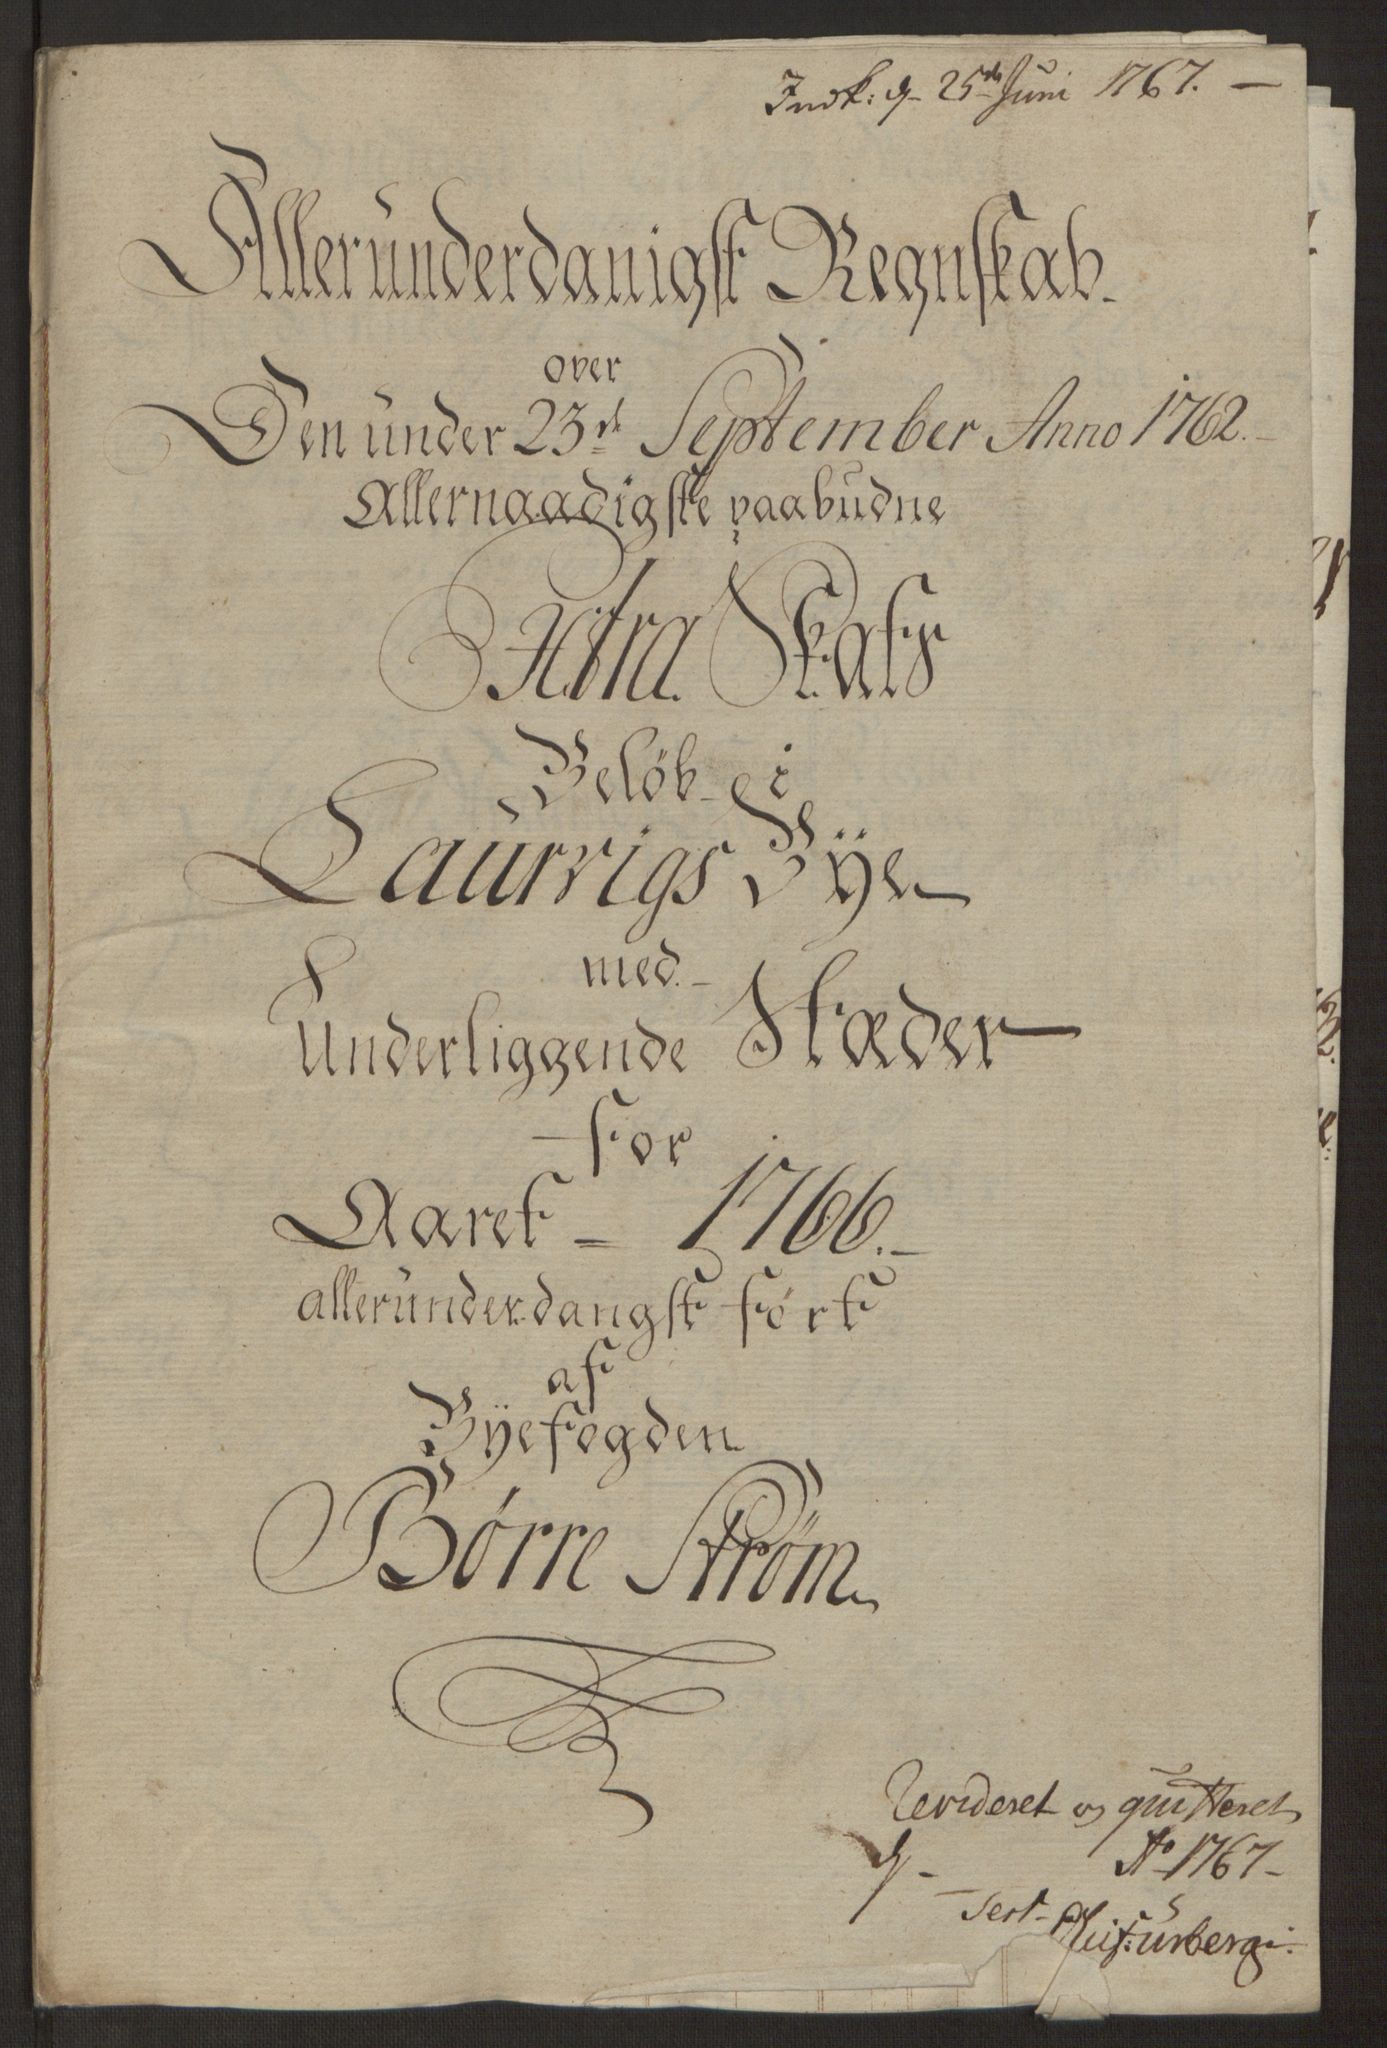 Indk: d 25de Juni 1767. —
Alleründerdanigst Regnskab.
over
Den ünder 23de September Anno 1762.
Allernaadigste paabudne
Extra Skats
Beløb i
Laurvigs Bÿe
med
Underliggende Stæder
for
Aaret 1766.
alleründerdangst ført
af
Bÿefogden
Børre Strøm
Revideret og quitteret
d - Ao 1767